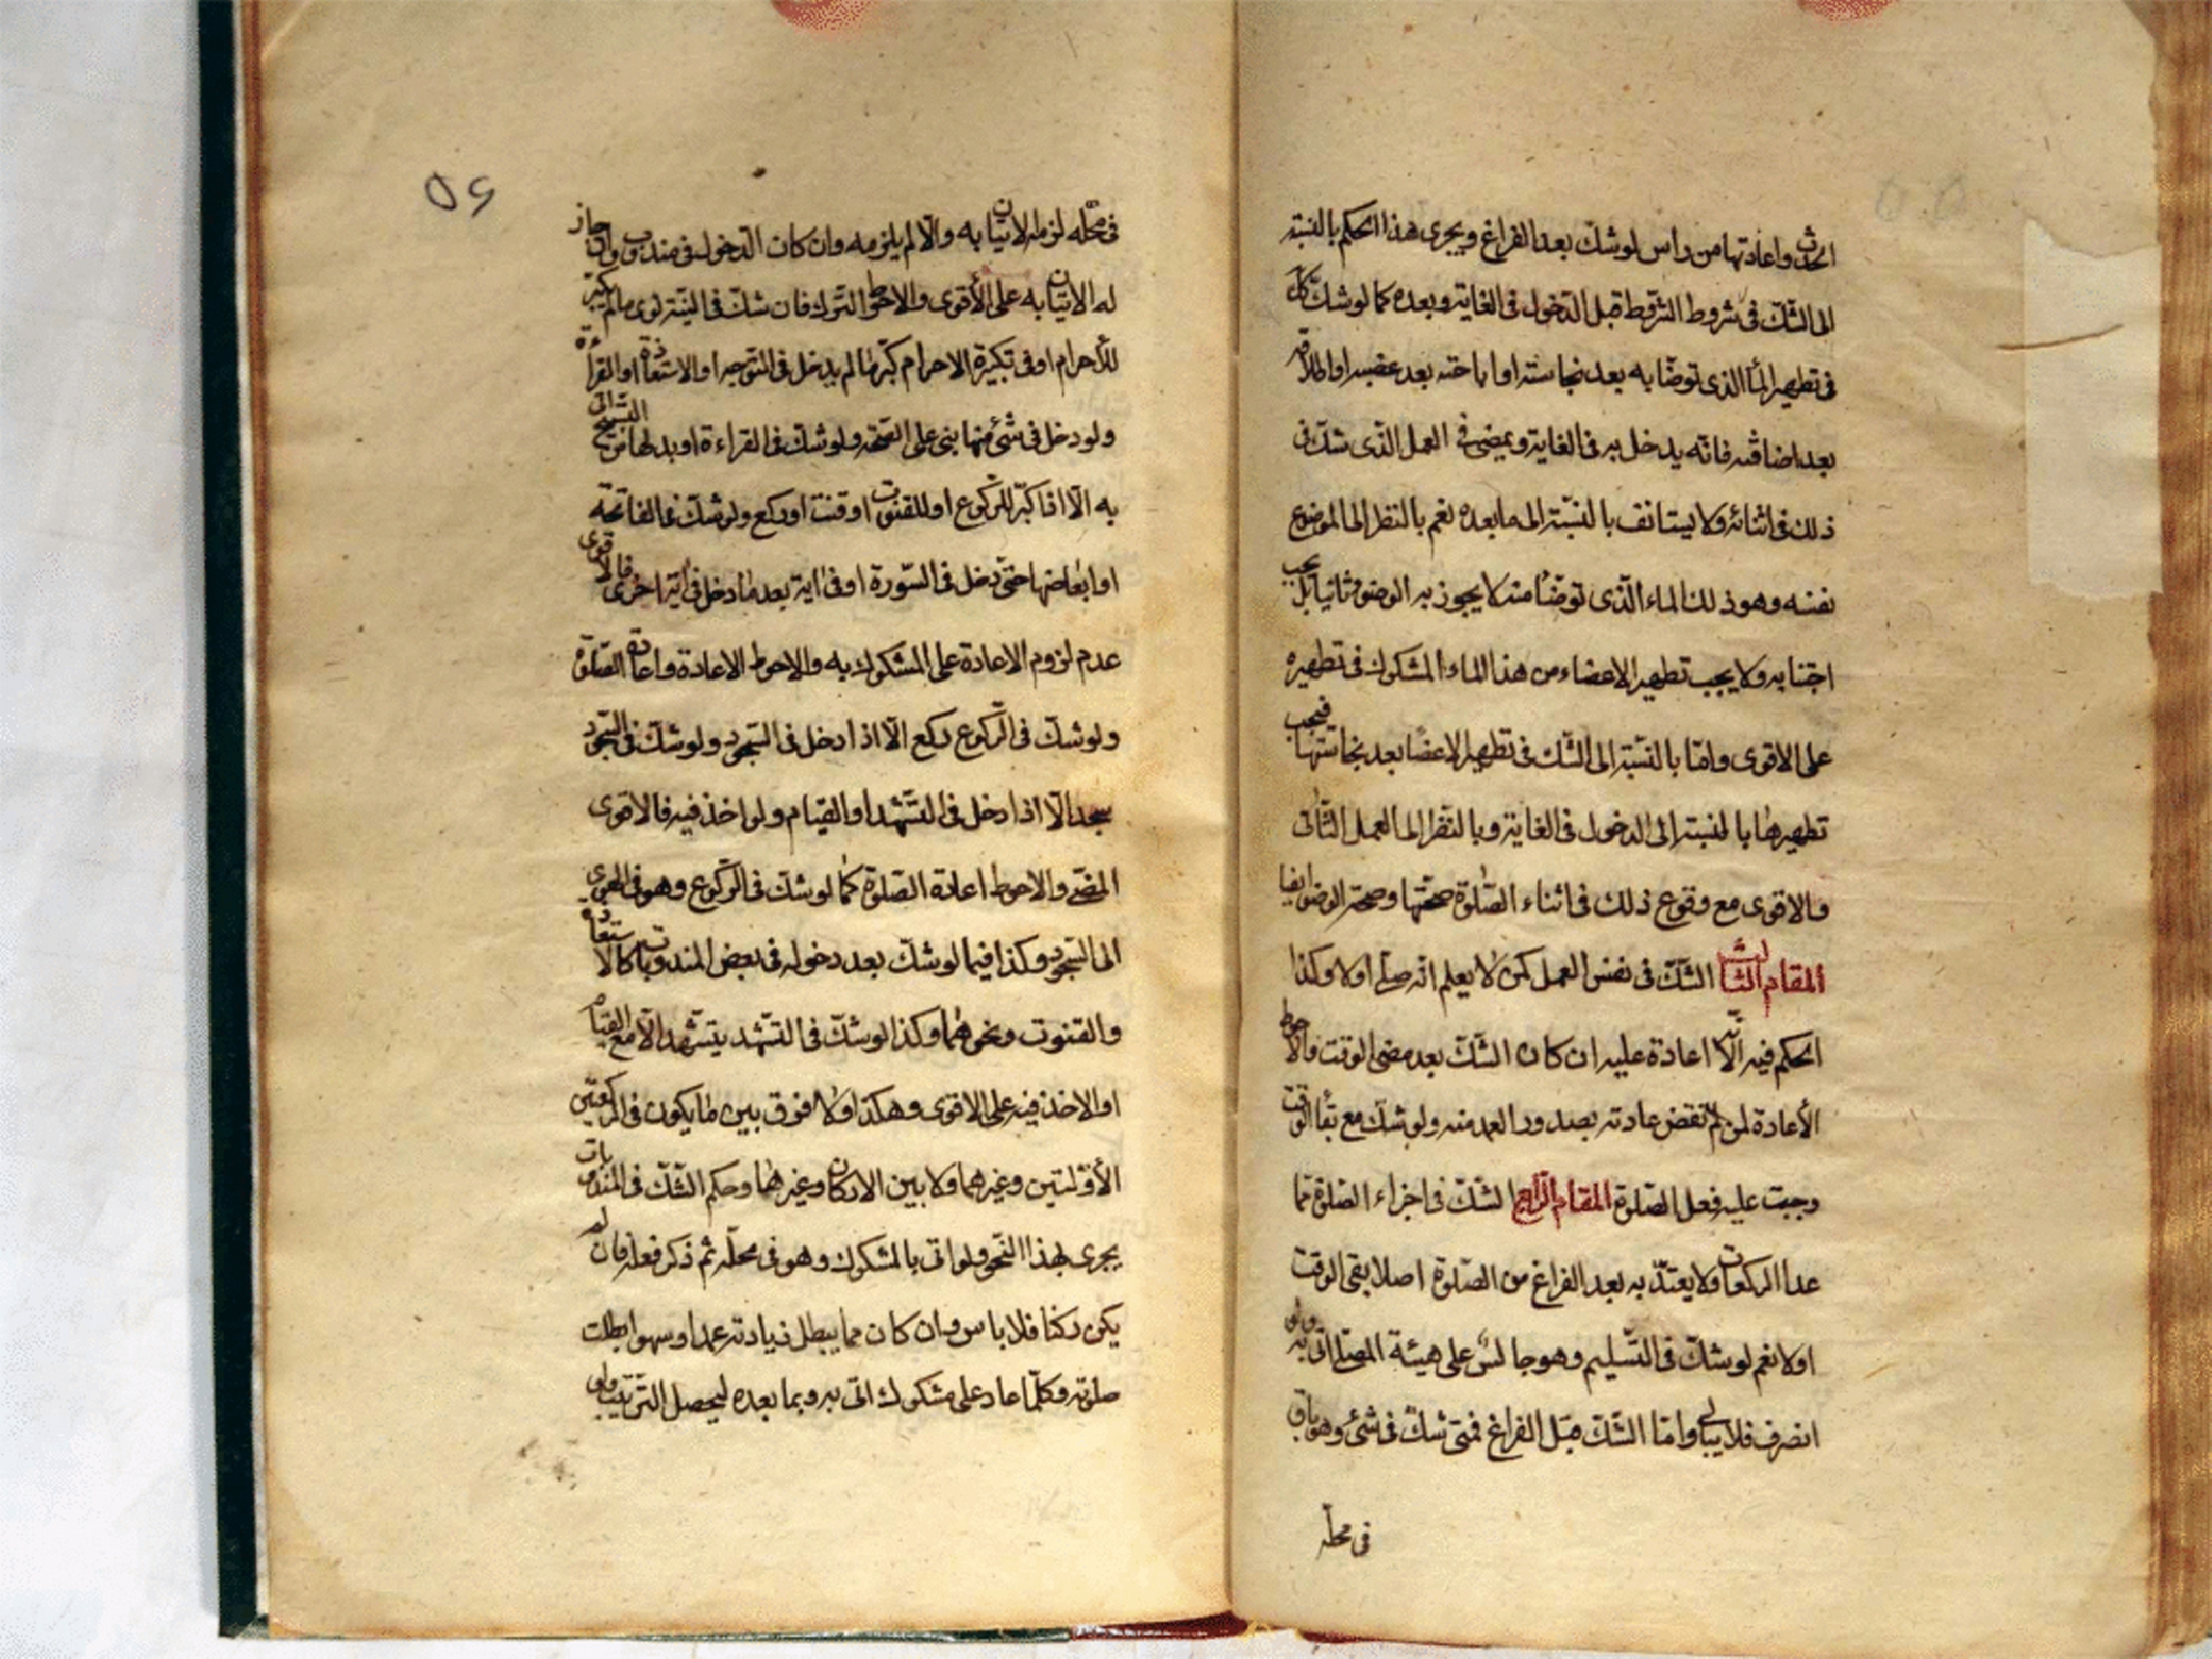 الحدث واعادتها من راس لو شك بعد الفراغ ويجرى هذا الحكم بالنسبة
الى الشك فى شروط الشروط قبل الدخول فى الغاية وبعده كما لو شك
فى تطهير الماء الذى توضا به بعد نجاسته او اباحته بعد غصبه او اطلاقه
بعد اضافته فانه يدخل به فى الغاية ويمضى فى العمل الذى شك فى
ذلك فى اثنائه ولا يستانف بالنسبة الى ما بعده نعم بالنظر الى الموضوع
نفسه وهو ذلك الماء الذى توضأ منه لا يجوز به الوضوء ثانيا بل يجب
اجتنابه ولا يجب تطهير الاعضاء من هذا الماء المشكوك فى تطهيره
على الاقوى وامّا بالنسّبة الى الشك فى تطهير الاعضا بعد نجاستها فيجب
تطهيرها بالنسبة الى الدخول فى الغاية وبالنظر الى العمل الثانى
والاقوى مع وقوع ذلك فى اثناء الصلوة صحتها وصحة الوضوء ايضا
المقام الثالث الشك فى نفس العمل كمن لا يعلم انه صلى اولا وكذا
الحكم فيه انه لا اعادة عليه ان كان الشك بعد مضى الوقت والاحوط
الأعادة لمن لم تقض عادته بصدور العمد منه ولو شك مع بقاء الوقت
وجبت عليه فعل الصلوة المقام الرابع الشك فى اجزاء الصلوة مما
عدا الركعات ولا يعتد به بعد الفراغ من الصلوة اصلا بقى الوقت
اولا نعم لو شك فى التسليم وهو جالس على هيئة المصلى اتى به ولو
انصرف فلا يبالى وامّا الشك قبل الفراغ فمتى شك فى شئ وهو باق
فى محله
٥٦
فى محله لزمه الاتيان به والّا لم يلزمه وان كان الدخول فى مندوب وان جاز
له الاتيان به على الأقوى والاحوط الترك فان شك فى النية نوى ما لم يكبر
للأحرام او فى تكبيرة الاحرام كبر ما لم يدخل فى التوجه او الاستعاذة او القرائة
ولو دخل فى شئ منها بنى على الصحة ولو شك فى القراءة او بدلها من التسبيح اتى
به الّا اذا كبر للركوع او للقنوت او قنت او ركع ولو شك فى الفاتحة
او ابعاضها حتى دخل فى السورة او فى اية بعد ما دخل فى اية اخرى فالاقوى
عدم لزوم الاعادة على المشكوك به والاحوط الاعادة واعادة الصلوة
ولو شك فى الركوع ركع الّا اذا دخل فى السجود ولو شك فى السجود
سجد الّا اذا دخل فى التشهد او القيام ولو اخذ فيه فالاقوى
المضى والاحوط اعادة الصلوة كما لو شك فى الركوع وهو فى الهوى
الى السجود وكذا فيما لو شك بعد دخوله فى بعض المندوبات كالاستعاذه
والقنوت ونحوهما وكذا لو شك فى التشهد يتشهد الّا مع القيام
او الاخذ فيه على الاقوى وهكذا ولا فرق بين ما يكون فى الركعتين
الأوّلتين وغيرهما ولا بين الاركان وغيرها وحكم الشك فى المندوبات
يجرى بهذا النحو ولو اتى بالمشكوك وهو فى محله ثم ذكر فعله فان لم
يكن ركنا فلا باس وان كان مما يبطل زيادته عمدا وسهوا بطلت
صلوته وكلّما عاد على مشكوك اتى به وبما بعده ليحصل الترتيب ولو